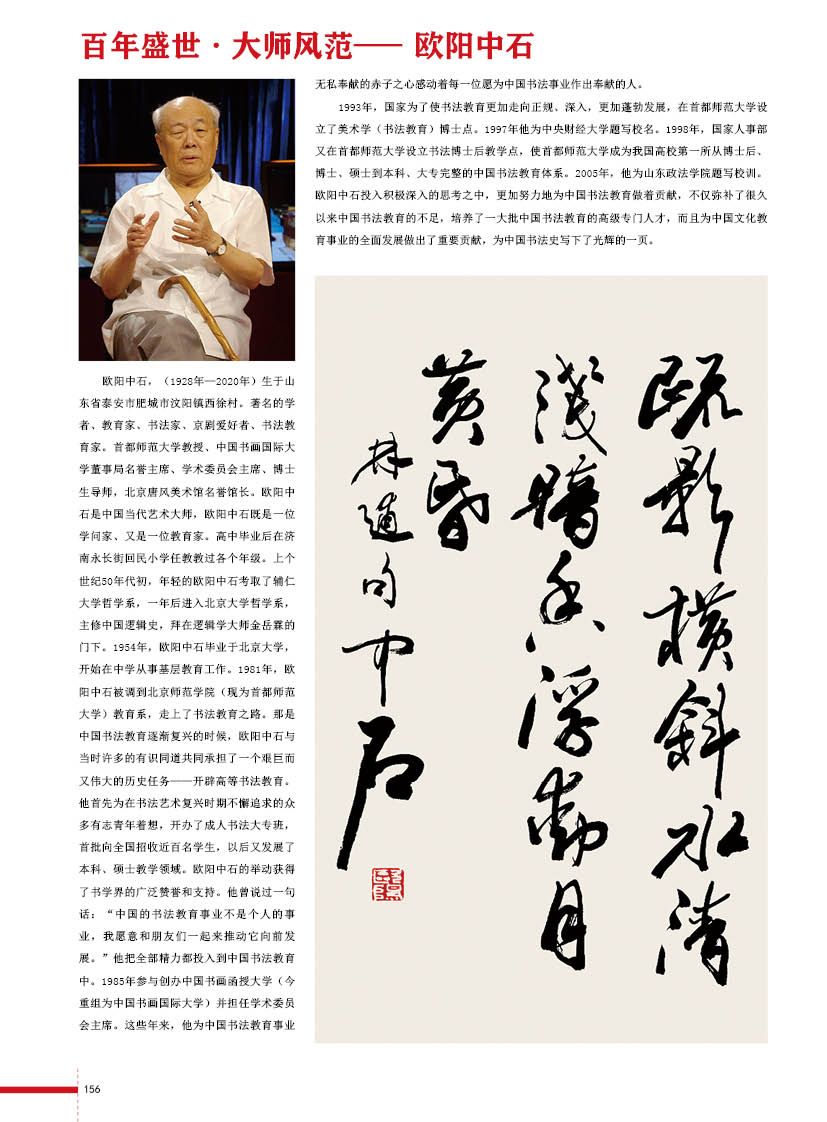 百年盛世·大师风范—— 欧阳中石
欧阳中石，（1928年—2020年）生于山
东省泰安市肥城市汶阳镇西徐村。著名的学
者、教育家、书法家、京剧爱好者、书法教
育家。首都师范大学教授、中国书画国际大
学董事局名誉主席、学术委员会主席、博士
生导师，北京唐风美术馆名誉馆长。欧阳中
石是中国当代艺术大师，欧阳中石既是一位
学问家、又是一位教育家。高中毕业后在济
南永长街回民小学任教教过各个年级。上个
世纪50年代初，年轻的欧阳中石考取了辅仁
大学哲学系，一年后进入北京大学哲学系，
主修中国逻辑史，拜在逻辑学大师金岳霖的
门下。1954年，欧阳中石毕业于北京大学，
开始在中学从事基层教育工作。1981年，欧
阳中石被调到北京师范学院（现为首都师范
大学）教育系，走上了书法教育之路。那是
中国书法教育逐渐复兴的时候，欧阳中石与
当时许多的有识同道共同承担了一个艰巨而
又伟大的历史任务——开辟高等书法教育。
他首先为在书法艺术复兴时期不懈追求的众
多有志青年着想，开办了成人书法大专班，
首批向全国招收近百名学生，以后又发展了
本科、硕士教学领域。欧阳中石的举动获得
了书学界的广泛赞誉和支持。他曾说过一句
话：“中国的书法教育事业不是个人的事
业，我愿意和朋友们一起来推动它向前发
展。”他把全部精力都投入到中国书法教育
中。1985年参与创办中国书画函授大学（今
重组为中国书画国际大学）并担任学术委员
会主席。这些年来，他为中国书法教育事业
无私奉献的赤子之心感动着每一位愿为中国书法事业作出奉献的人。
1993年，国家为了使书法教育更加走向正规、深入，更加蓬勃发展，在首都师范大学设
立了美术学（书法教育）博士点。1997年他为中央财经大学题写校名。1998年，国家人事部
又在首都师范大学设立书法博士后教学点，使首都师范大学成为我国高校第一所从博士后、
博士、硕士到本科、大专完整的中国书法教育体系。2005年，他为山东政法学院题写校训。
欧阳中石投入积极深入的思考之中，更加努力地为中国书法教育做着贡献，不仅弥补了很久
以来中国书法教育的不足，培养了一大批中国书法教育的高级专门人才，而且为中国文化教
育事业的全面发展做出了重要贡献，为中国书法史写下了光辉的一页。
疏影横斜水清
浅暗香浮动月
黄昏
林逋句中石
156